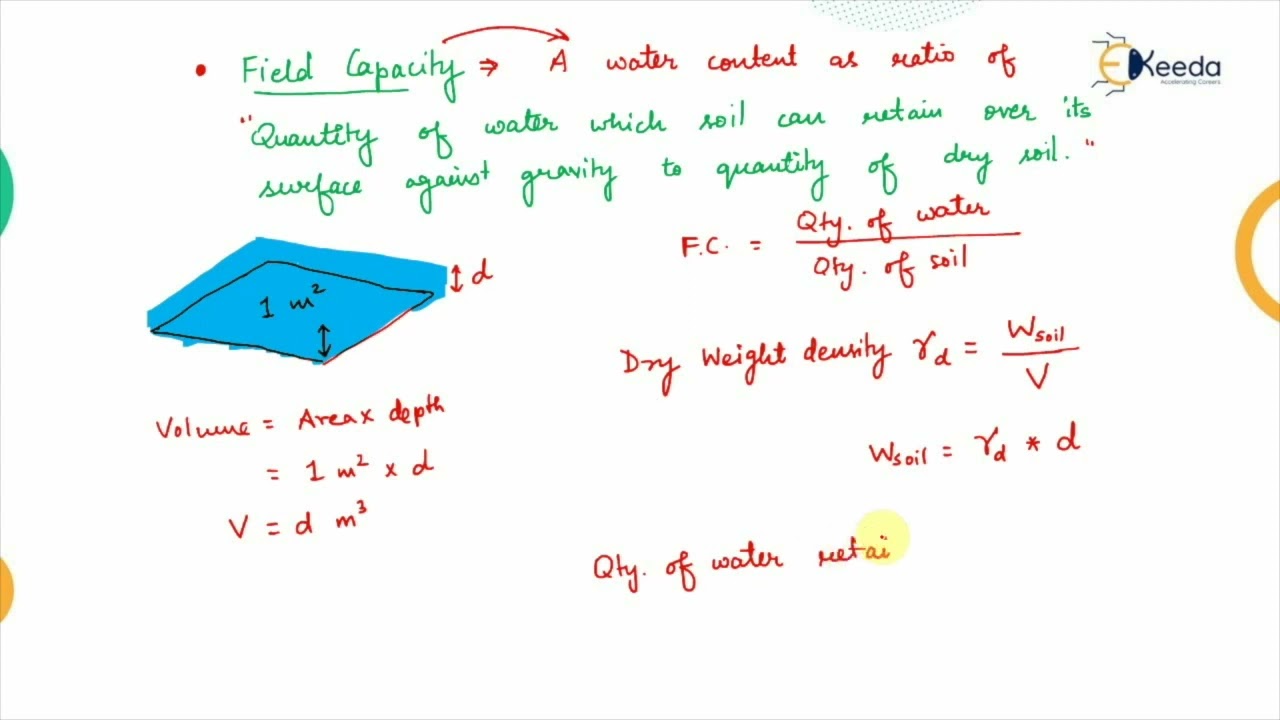 • Field Capacity ⇒ A water content as ratio of
"Quantity of water which soil can retain over its
surface against gravity to quantity of dry soil."
EKeeda
Accelerating Careers
F.C. = Qty. of water
Qty. of soil
1 m²
d
Dry Weight density γd = Wsoil
V
Volume = Area x depth
= 1 m² x d
V = d m³
Wsoil = γd * d
Qty. of water retai